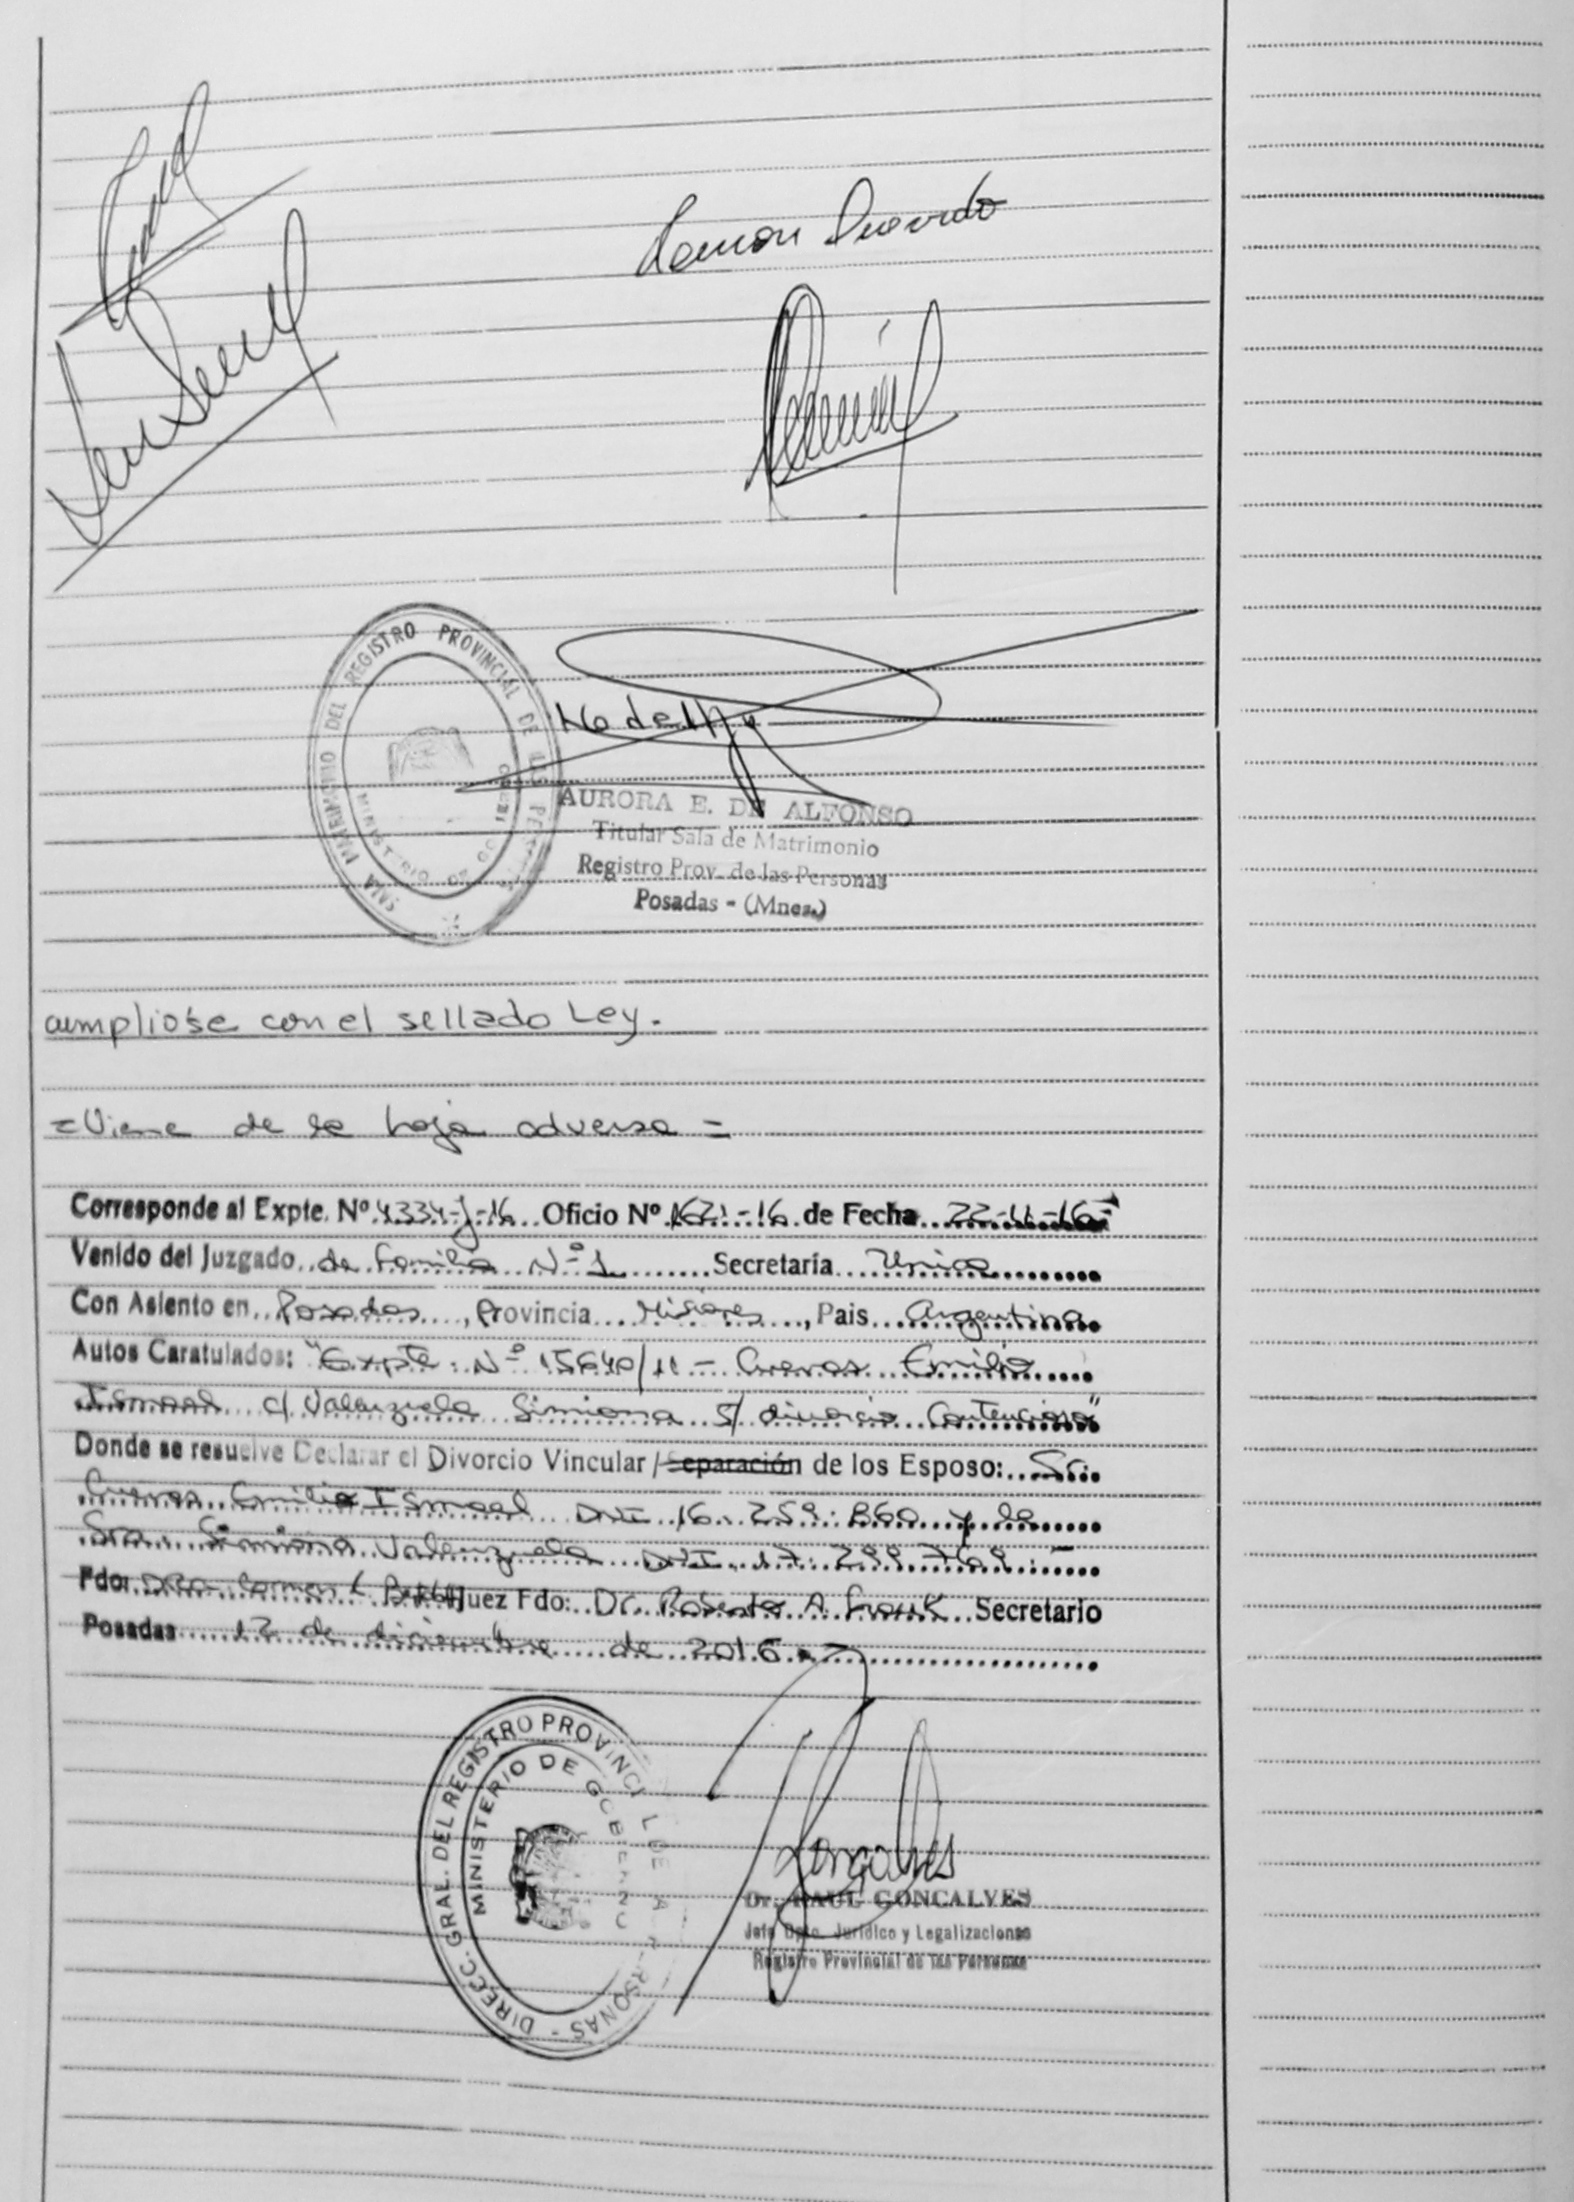 Ramon
REGISTRO PROVINCIAL DE LAS
SALA MATRIMONIO DEL
MINISTERIO DE GOBIERNO
AURORA E. DE ALFONSO
Titular Sala de Matrimonio
Registro Prov. de las Personas
Posadas - (Mnes.)
cumpliose con el sellado Ley.
= Viene de la hoja adversa =
Corresponde al Expte. Nº 4334-J-16 Oficio Nº 1621-16 de Fecha 22-11-16
Venido del Juzgado de Familia Nº 1 Secretaría Unica
Con Asiento en Posadas, Provincia Misiones, Pais Argentina
Autos Caratulados: "Expte. Nº 15640/11 - Cuevas Emilio
Ismael c/ Valenzuela Simiona S/ divorcio Contencioso"
Donde se resuelve Declarar el Divorcio Vincular / Separación de los Esposo: Sr.
Cuevas Emilio Ismael DNI 16.259.860 y la
Sra. Simiona Valenzuela DNI 17.299.769.-
Fdo: Dra. Carmen Juez Fdo: Dr. Roberto A. Frank Secretario
Posadas 12 de diciembre de 2016.-
DIRECC. GRAL. DEL REGISTRO PROVINCIAL DE LAS PERSONAS -
MINISTERIO DE GOBIERNO
Goncalves
Dr. RAUL GONCALVES
Jefe Dpto. Jurídico y Legalizaciones
Registro Provincial de las Personas